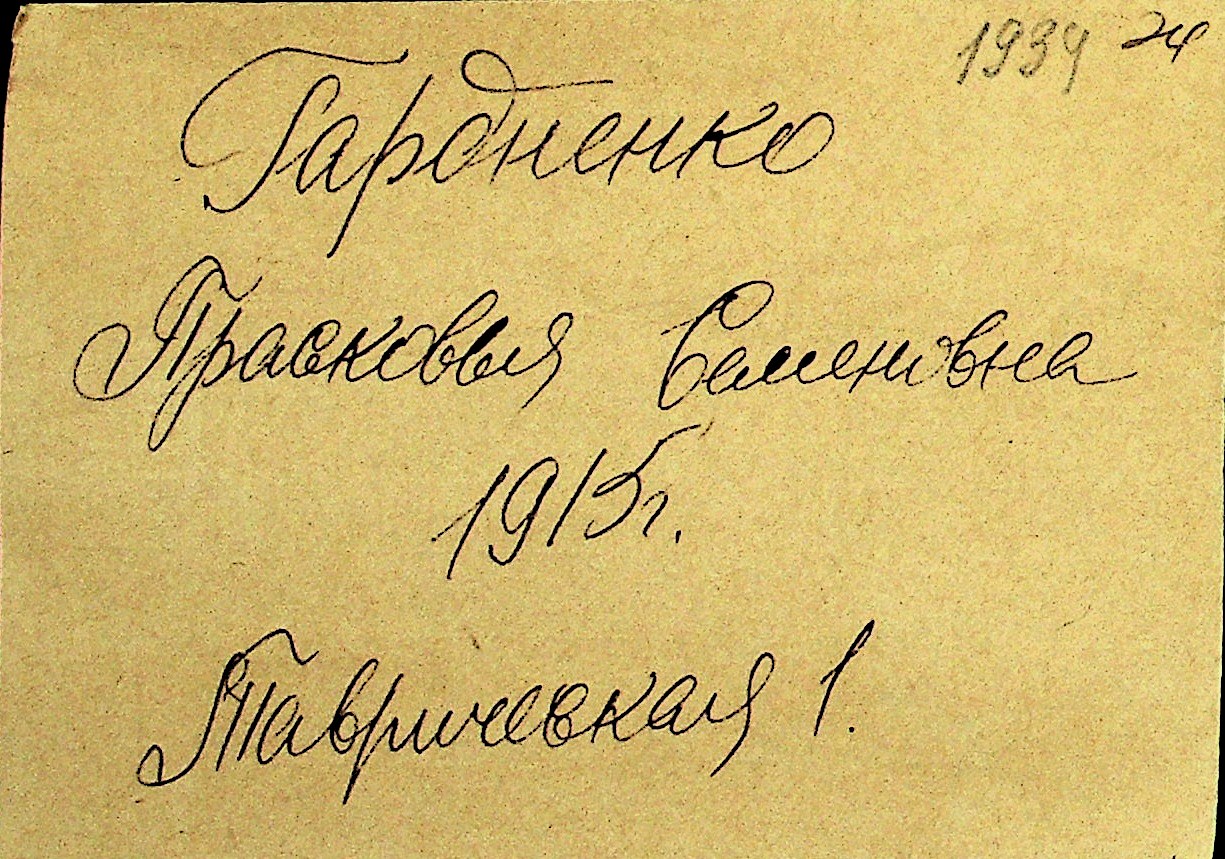 1934 24
Гардненко
Прасковья Семеновна
1915г.
Таврическая 1.